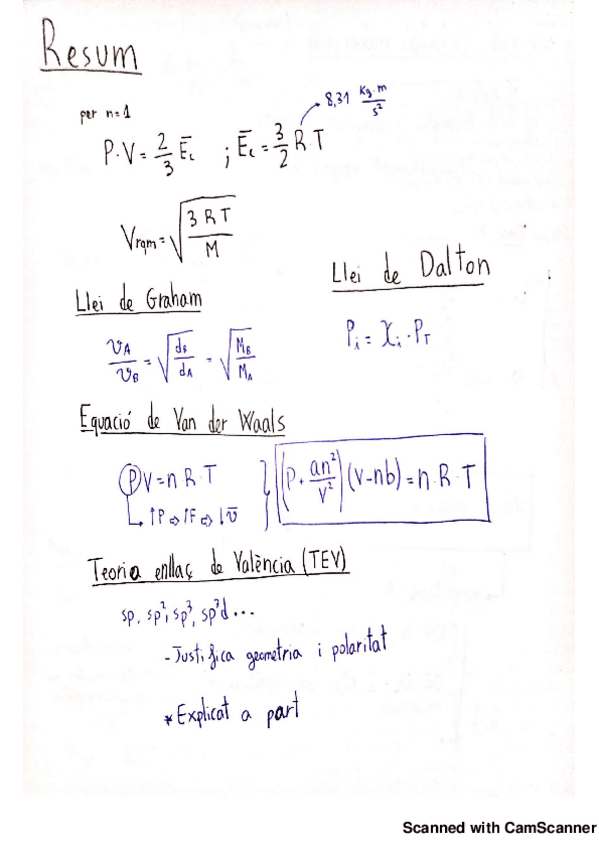 Resum
per n=1
P·V = 2/3 Ēc ; Ēc = 3/2 R·T → 8,31 Kg·m/s²
Vrqm = √(3RT/M)
Llei de Dalton
Pi = Xi · PT
Llei de Graham
vA/vB = √(dB/dA) = √(MB/MA)
Equació de Van der Waals
PV = n R·T } (P + an²/V²)(V-nb) = n·R·T
↑P ⇒ ↑F ⇒ ↓v̄
Teoria enllaç de València (TEV)
sp, sp², sp³, sp³d ...
- Justifica geometria i polaritat
* Explicat a part
Scanned with CamScanner